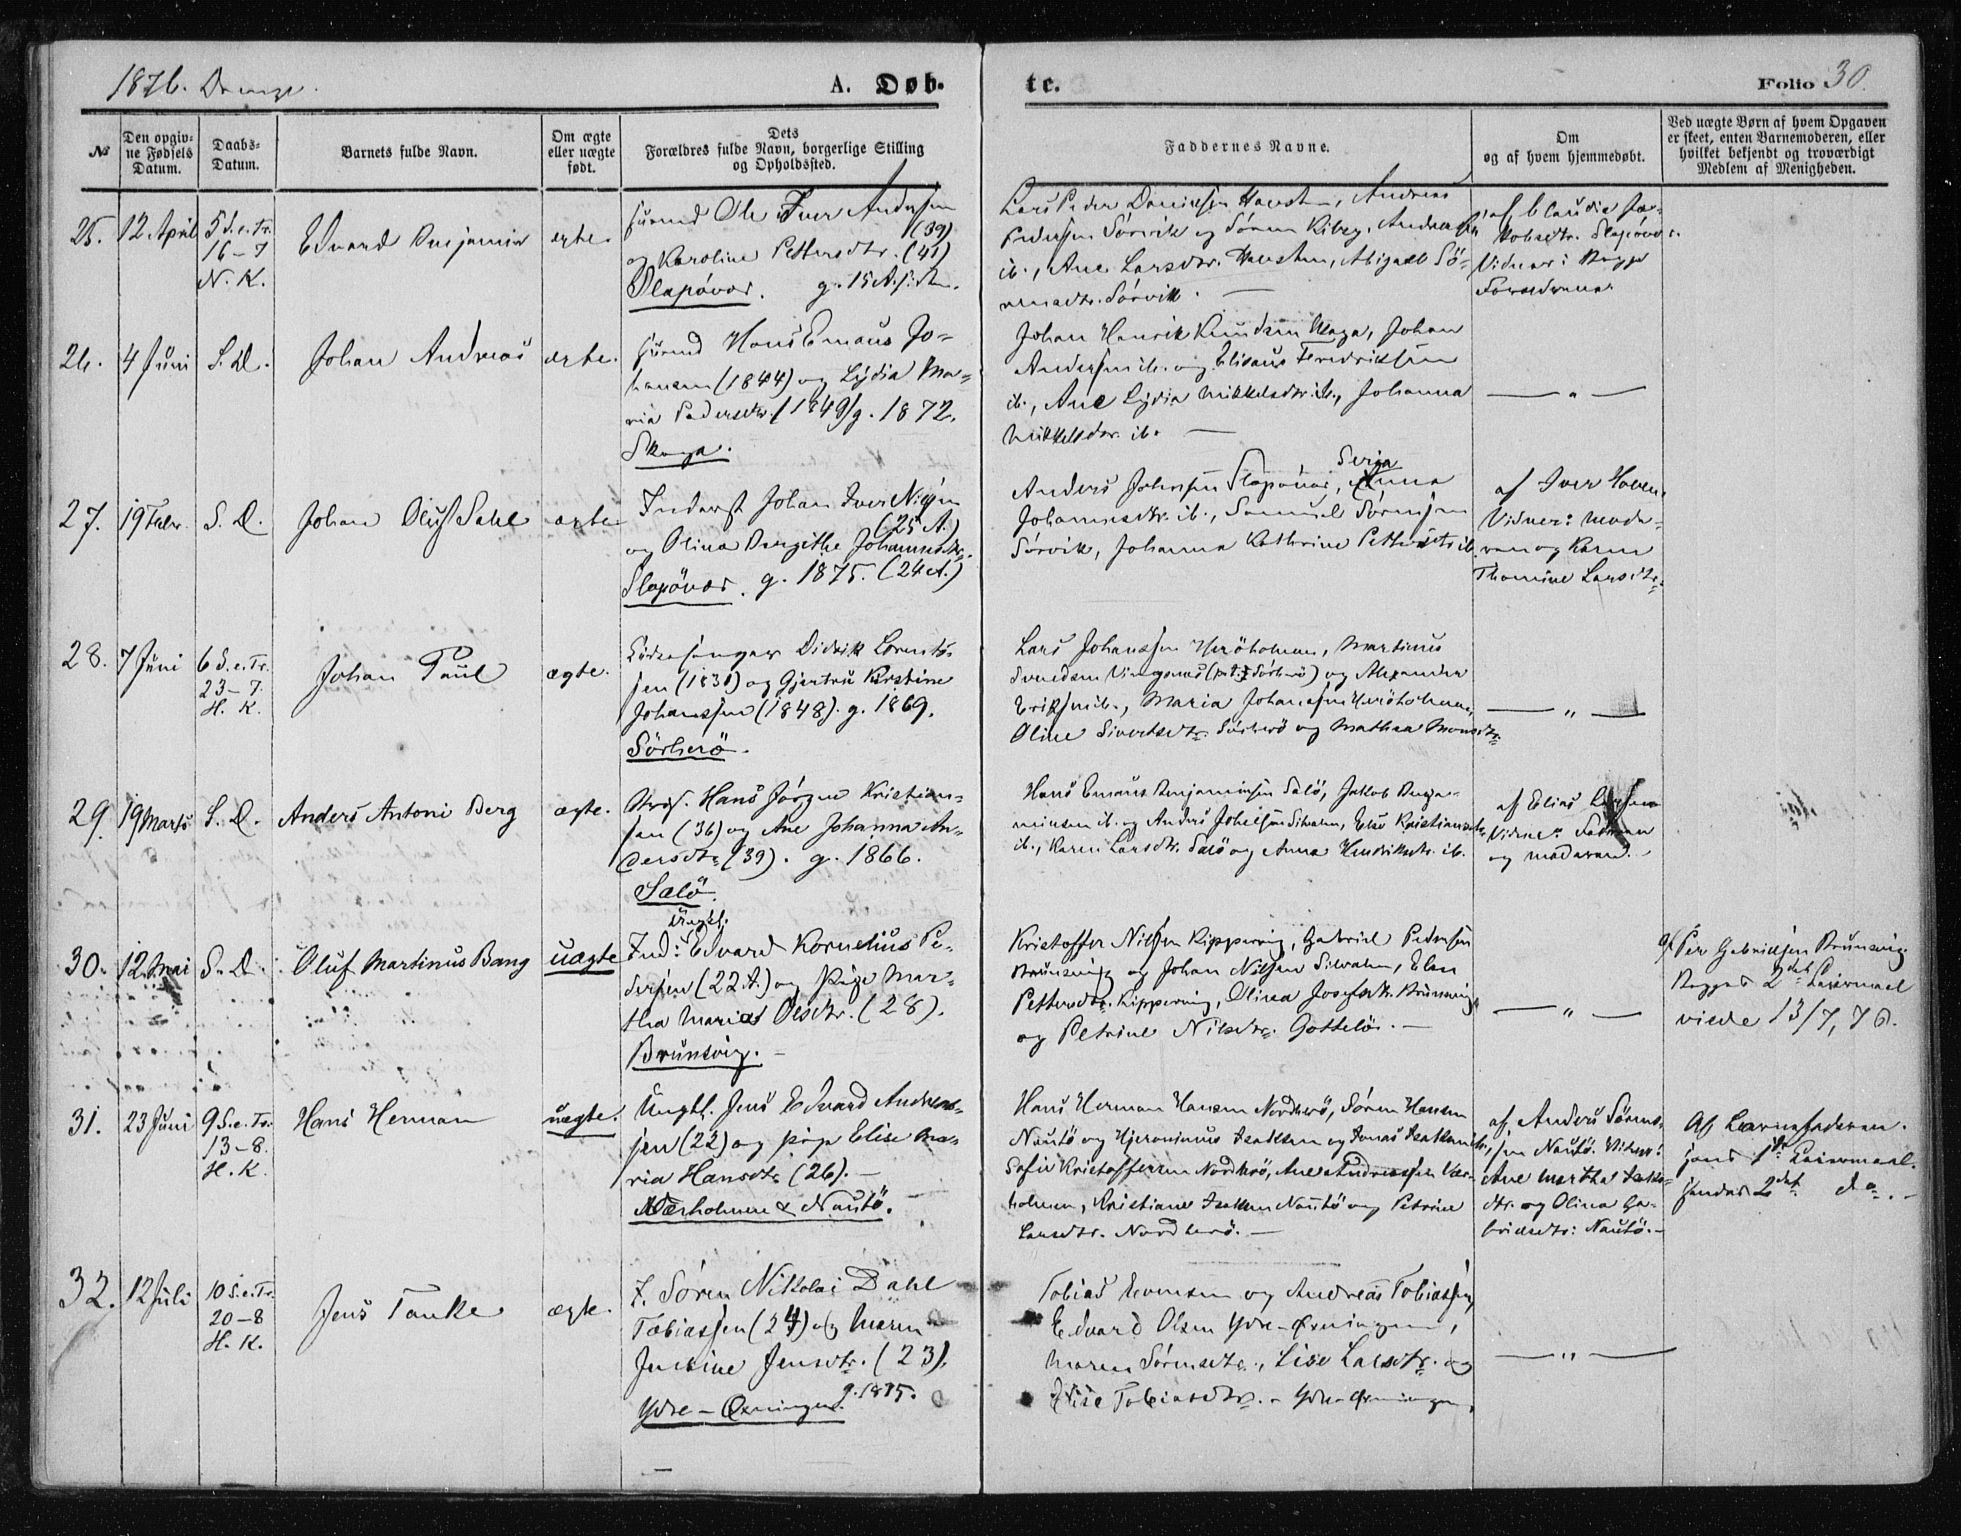 1876. Drenge.
A. Døb-
te.
Folio 30.
№
Den opgiv-
ne Fødsels
Datum.
Daabs-
Datum.
Barnets fulde Navn.
Om ægte
eller uægte
født.
Dets
Forældres fulde Navn, borgerlige Stilling
og Opholdssted.
Faddernes Navne.
Om
og af hvem hjemmedøbt.
Ved uægte Børn af hvem Opgaven
er skeet, enten Barnemoderen, eller
hvilket bekjendt og troværdigt
Medlem af Menigheden.
25.
12 April
5 S. e. Tr.
16-7
N. K.
Edvard Benjamin
ægte.
Ole Iver Andersen
(39)
og Karoline Pettersdtr. (41)
Slapövær. g. 15 A. siden.
Lars Peder Danielsen Havsten, Andreas
Pedersen Sörvik og Sören Andreassen
ib., Ane Larsdtr. Havsten, Abigael Sö-
rensdtr. Sörvik.
af Claudia Ja-
kobsdtr. Slapövær.
Vidner: Begge
Forældrene
26.
4 Juni
S. D.
Johan Andreas
ægte.
Hans Emaus Jo-
hansen (1844) og Lydia Ma-
ria Pedersdtr. (1849) g. 1872.
Skaga.
Johan Henrik Knudsen Skaga, Johan
Andersen ib. og Elisæus Fredriksen
ib., Ane Lydia Mikkelsdtr. ib., Johanna
Mikkelsdtr. ib.
— " —
27.
19 Febr.
S. D.
Johan Oluf Sahl
ægte
Inderst Johan Iver Nilsen
(25 A.)
og Olina Bergithe Johannesdtr.
Slapövær. g. 1875. (24 A.)
Serja
Anders Johnsen Slapövær, Anna
Johannesdtr. ib., Samuel Sörensen
Sörvik, Johanna Kathrine Pettersdtr ib.
af Iver Haven.
Vidner: Mode-
ren og Karen
Thomine Larsdtr.
28.
7 Juni
6 S. e. Tr.
23-7.
H. K.
Johan Paul
ægte.
Kirkesanger Didrik Lorents-
sen (1831) og Gjertru Kirstine
Johanssen (1848). g. 1869.
Sörherö.
Lars Johanssen Heröholmen, Martinus
Svendsen Vingsnes (p.t. Sörherö) og Alexander
Eriksen ib., Maria Johansen Heröholmen,
Oline Sivertsdtr. Sörherö og Mathea Monsdtr.
— " —
29.
19 Marts
S. D.
Anders Antoni Berg
ægte.
Hans Jörgen Kristian-
sen (36) og Ane Johanna An-
dersdtr. (39). g. 1866.
Salö.
Hans Emaus Benjaminsen Salö, Jakob Benja-
minsen ib. og Anders Johelsen Silvalen, Else Kristiansdtr.
ib., Karen Larsdtr. Salö og Anna Henriksdtr. ib.
af Elias Larsen
Vidner: Faderen
og Moderen.
30.
12. Mai
S. D.
Oluf Martinus Bang
uægte
Ungkl.
Ind: Edvard Kornelius Pe-
dersen (22 A.) og Pige Mar-
tha Maria Olsdtr. (28).
Brunsvig.
Kristoffer Nilsen Kippervig, Gabriel Pedersen
Brunsvig og Johan Nilsen Silvalen, Elen
Pettersdtr. Kippervig, Olina Josefsdtr. Brunsvig
og Petrine Nilsdtr. Gottelö.
— " —
af Per Gabrielsen Brunsvig.
Begges 2det Leiermaal
viede 13/7, 76.
31.
23 Juni
9 S. e. Tr.
13-8.
H. K.
Hans Herman
uægte.
Ungkl. Jens Edvard Andreas-
sen (22) og pige Elise Ma-
ria Hansdtr. (26).
Værholmen & Nautö.
Hans Herman Hansen Nordherö, Sören Hansen
Nautö og Hjeronimus Isaksen og Jonas Isaksen ib.,
Sofie Kristoffersen Nordherö, Ane Andreassen Vær-
holmen, Kristiane Isaksen Nautö og Petrine
Larsdtr. Nordherö.
af Anders Sörens-
sen Nautö. Vidner:
Ane Martha Isaks-
dtr. og Olina Ga-
brielsdtr: Nautö.
Af Barnefaderen.
hans 1ste Leiermaal.
hendes 2det do.
32.
12 Juli
10 S. e. Tr.
20-8
H. K.
Jens Tanke
ægte.
I. Sören Nikolai Dahl
Tobiassen (24) og Maren
Jensine Jensdtr. (23),
g. 1875.
Ydre-Öxningen.
Tobias Evensen og Andreas Tobiassen,
Edvard Olsen Ydre-Öxningen,
Maren Sörensdtr., Lise Larsdtr. og
Elise Tobiasdtr. - Ydre-Öxningen.
— " —